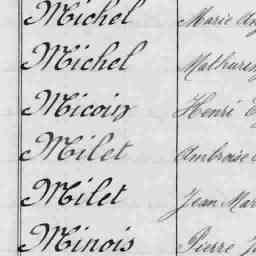 Michel Marie
Michel Mathurin
Micoin Henri
Milet Ambroise
Milet Jean Mar
Minois Pierre